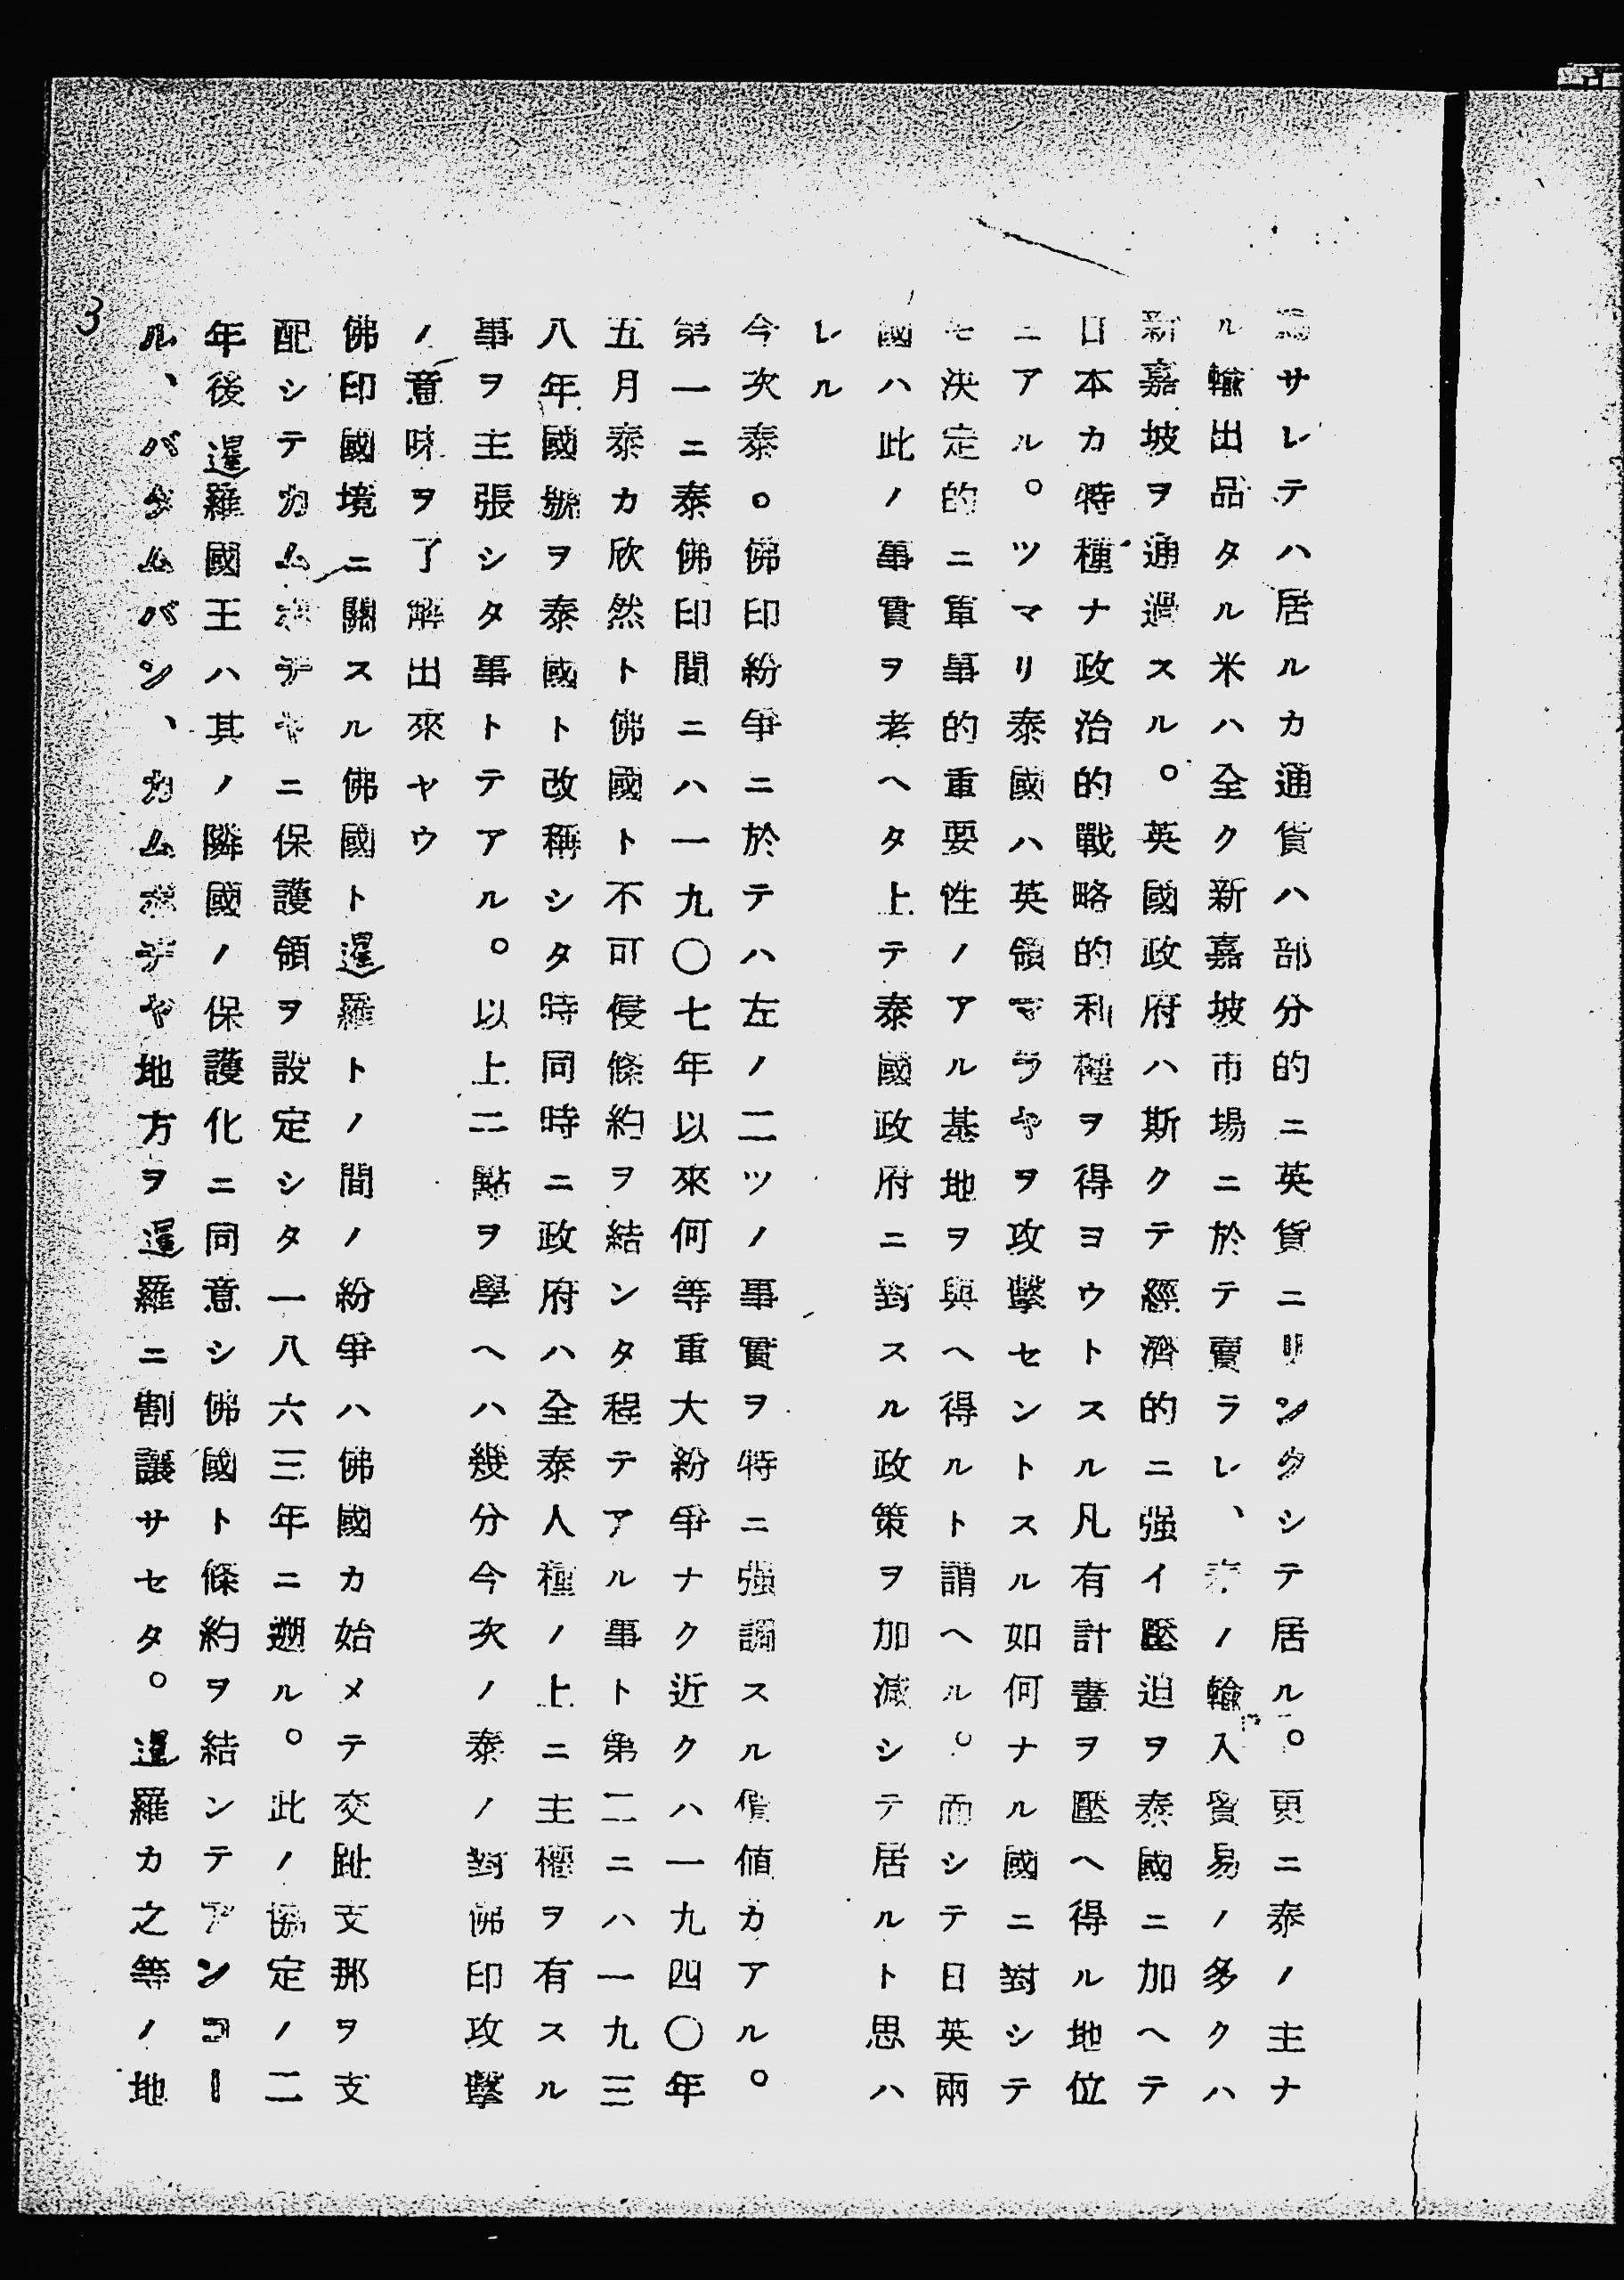 爲サレテハ居ルカ通貨ハ部分的ニ英貨ニリンクシテ居ル。更ニ泰ノ主ナ
ル輸出品タル米ハ全ク新嘉坡市場ニ於テ賣ラレ、泰ノ輸入貿易ノ多クハ
新嘉坡ヲ通過スル。英國政府ハ斯クテ經濟的ニ强イ壓迫ヲ泰國ニ加ヘテ
日本カ特種ナ政治的戰略的利權ヲ得ヨウトスル凡有計畫ヲ壓ヘ得ル地位
ニアル。ツマリ泰國ハ英領マラヤヲ攻擊セントスル如何ナル國ニ對シテ
モ決定的ニ軍事的重要性ノアル基地ヲ與ヘ得ルト謂ヘル。而シテ日英兩
國ハ此ノ事實ヲ考ヘタ上テ泰國政府ニ對スル政策ヲ加減シテ居ルト思ハ
レル
今次泰。佛印紛爭ニ於テハ左ノ二ツノ事實ヲ特ニ强調スル價値カアル。
第一ニ泰佛印間ニハ一九〇七年以來何等重大紛爭ナク近クハ一九四〇年
五月泰カ欣然ト佛國ト不可侵條約ヲ結ンタ程テアル事ト第二ニハ一九三
八年國號ヲ泰國ト改稱シタ時同時ニ政府ハ全泰人種ノ上ニ主權ヲ有スル
事ヲ主張シタ事トテアル。以上二點ヲ擧ヘハ幾分今次ノ泰ノ對佛印攻擊
ノ意味ヲ了解出來ヤウ
佛印國境ニ關スル佛國ト暹羅トノ間ノ紛爭ハ佛國カ始メテ交趾支那ヲ支
配シテカムボヂヤニ保護領ヲ設定シタ一八六三年ニ遡ル。此ノ協定ノ二
年後暹羅國王ハ其ノ隣國ノ保護化ニ同意シ佛國ト條約ヲ結ンテアンコー
ル、バタムバン、カムボヂヤ地方ヲ暹羅ニ割讓サセタ。暹羅カ之等ノ地
3